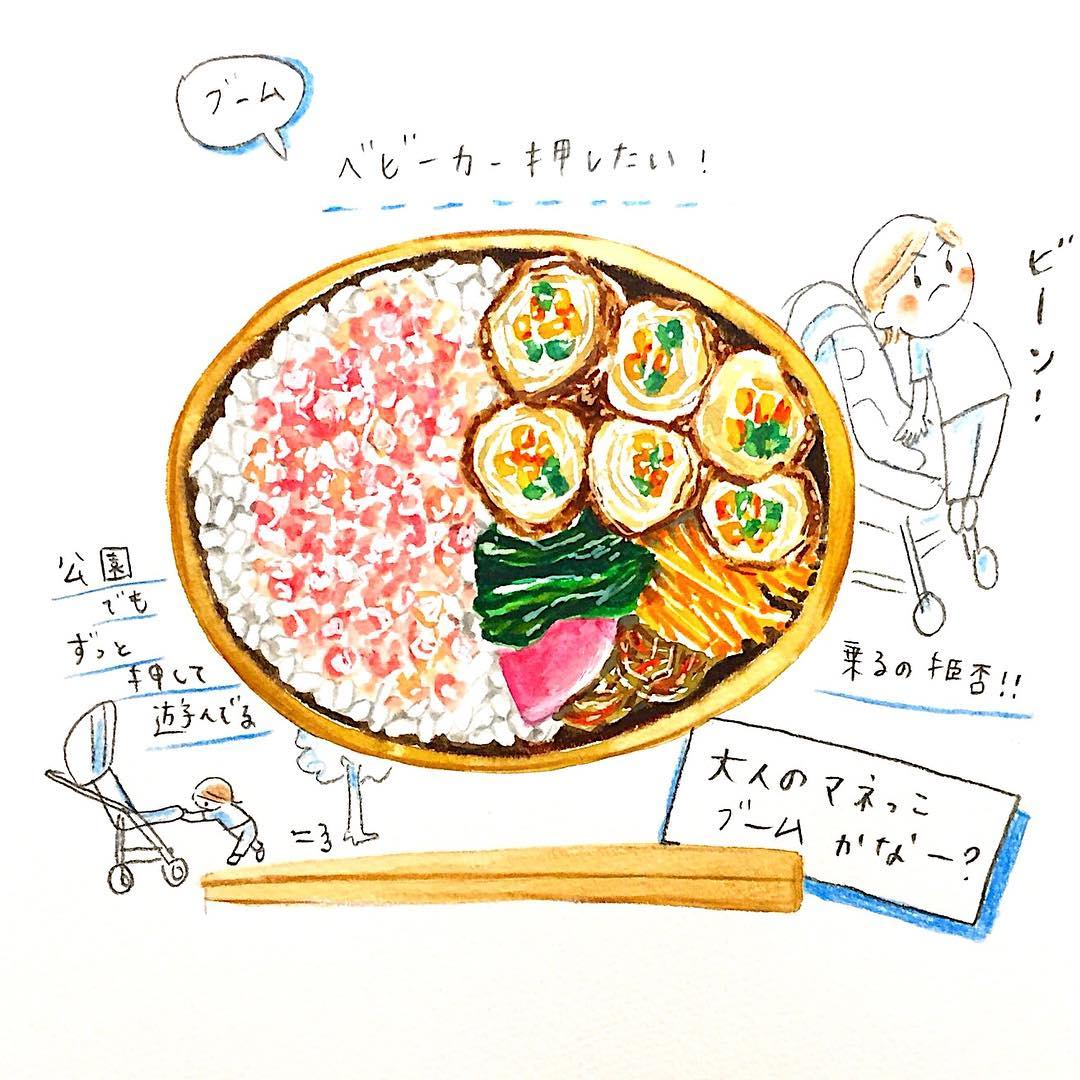 ブーム
ベビーカー押したい!
ビーン!
公園
でも
ずっと
押して
遊んでる
乗るの拒否!!
大人のマネっこ
ブームかなー?